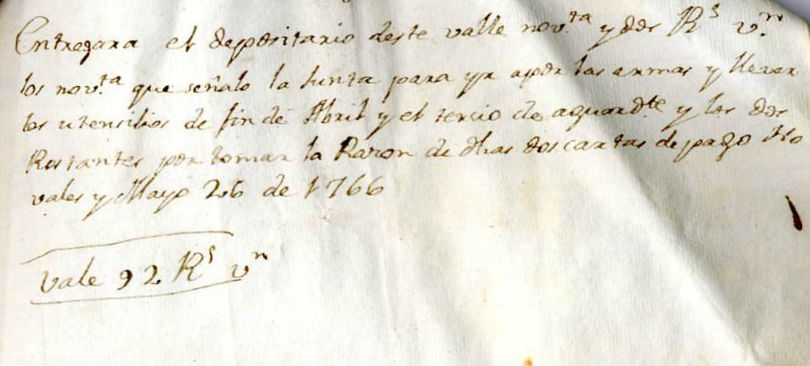 Entregara el depositario deste valle nov.ta y dos R.s v.n
los nov.ta que señalo la Junta para yr a por las armas y llevar
los utensilios de fin de Abril y el tercio de aguard.te y los dos
Restantes por tomar la Razon de dhas dos cartas de pago
vales y Mayo 26 de 1766
vale 92 R.s v.n